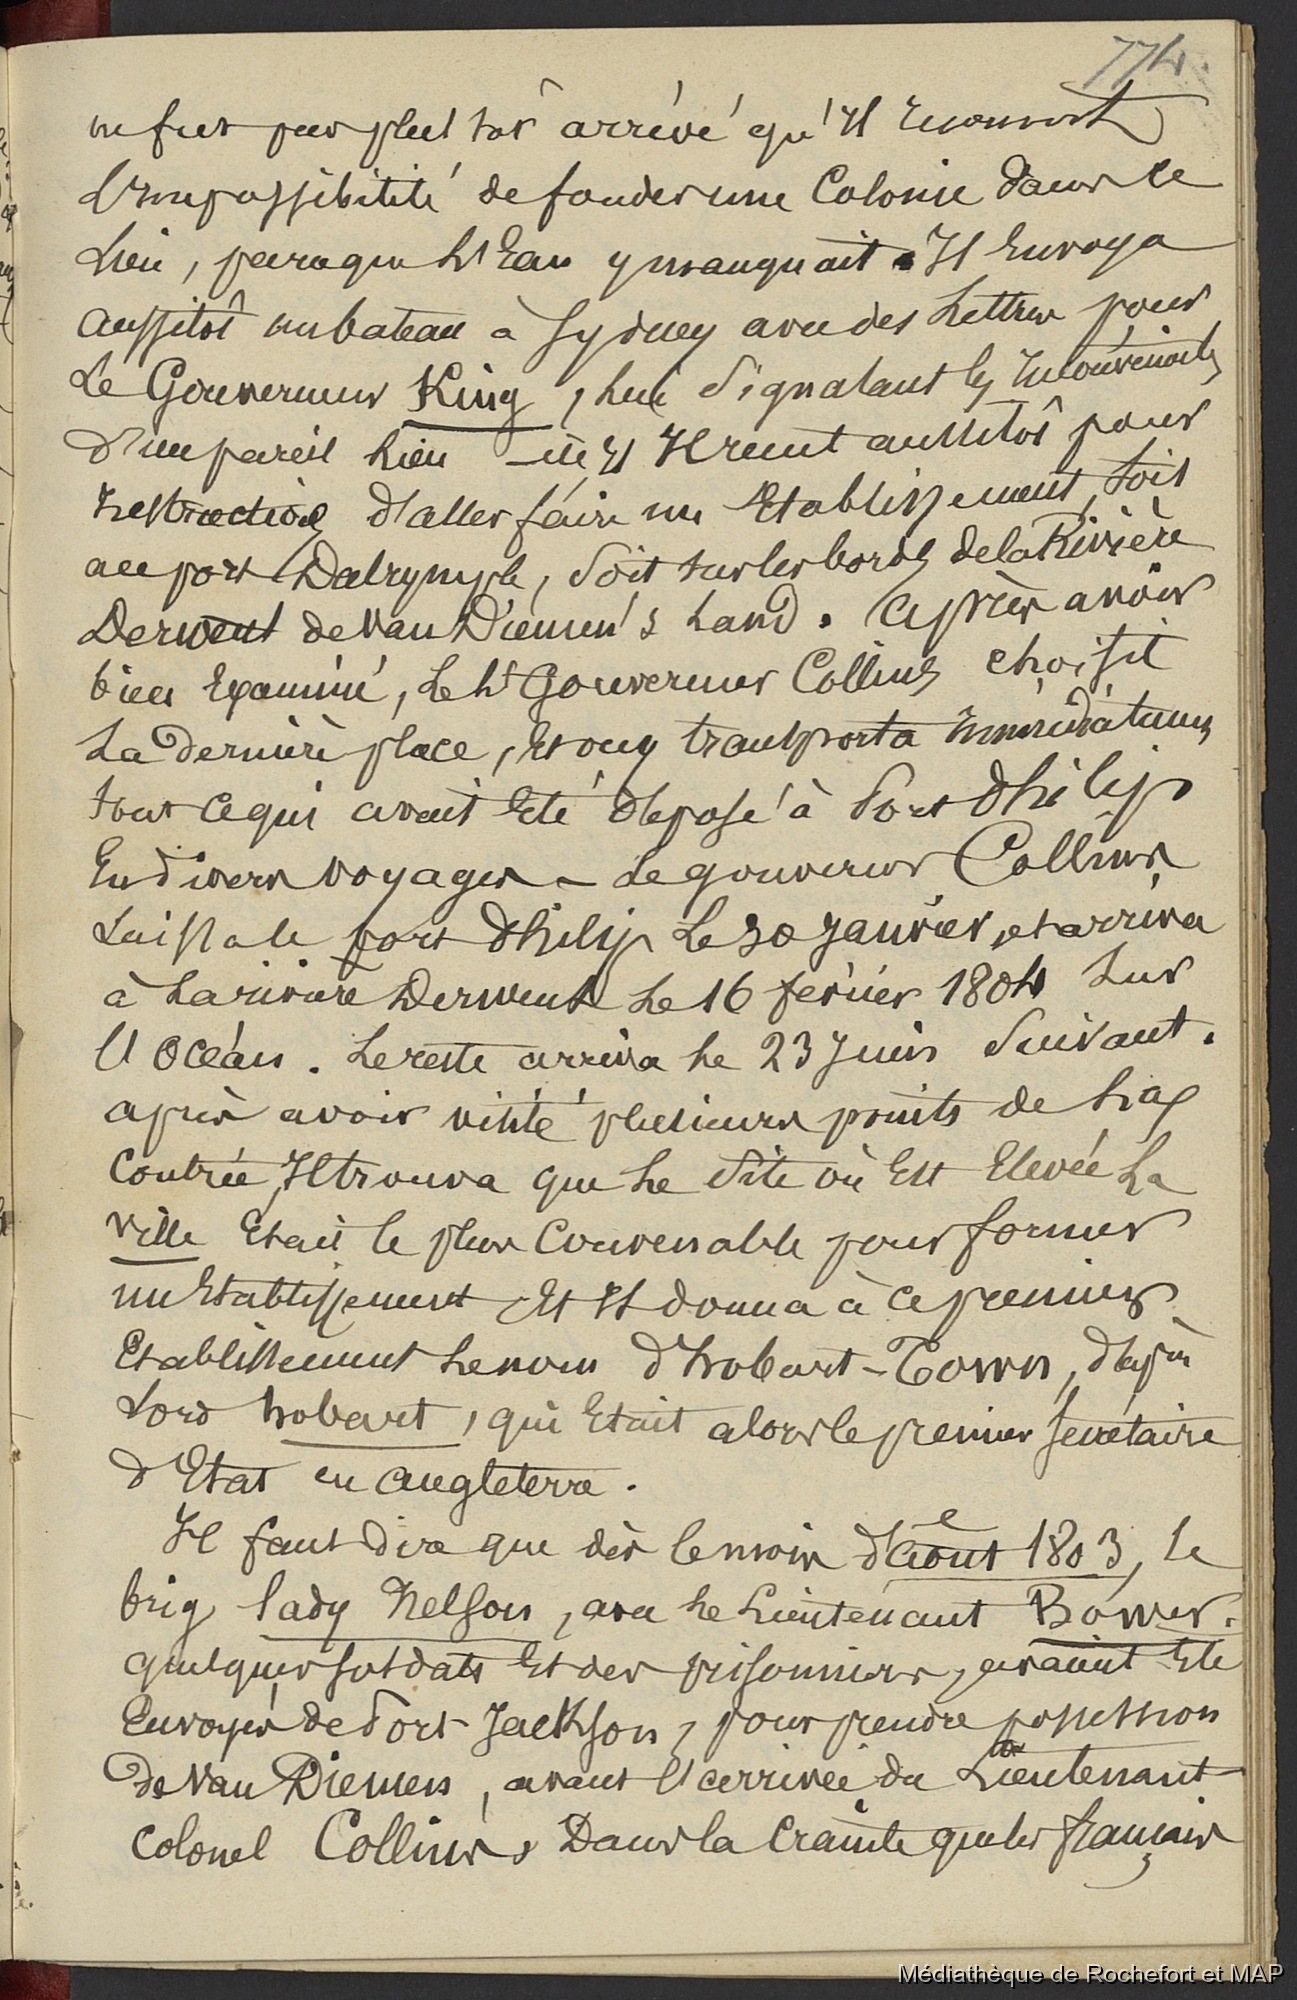 774.
ne fut pas plus tôt arrivé qu'Il reconnut
L'Impossibilité de fonder une Colonie dans ce
Lieu, parceque L'Eau y manquait. Il Envoya
Aussitôt un bateau à Sydney avec des Lettres pour
Le Gouverneur King, Lui Signalant les Inconvenients
d'un pareil Lieu Il recut aussitôt pour
Instructions d'aller faire un Etablissement, Soit
au port Dalrymple, Soit sur les bords de la Rivière
Derwent de Van Diemen's Land. Après avoir
bien Examiné, Le Lt Gouverneur Collins choisit
La dernière place, Et on y transporta Immédiatement
tout ce qui avait Eté déposé à Port Philip
En divers voyages – Le gouverneur Collins
Laissa le port Philip Le 30 Janvier, et arriva
à La rivière Derwent Le 16 février 1804 Sur
L'Océan. Le reste arriva Le 23 Juin Suivant.
après avoir visité plusieurs points de La
Contrée, Il trouva que Le Site où Est Elevée La
ville Etait le plus Convenable pour former
un Etablissement Et Il donna à ce premier
Etablissement Le nom d'hobart-Town, d'après
Lord hobart, qui Etait alors le premier Secrétaire
d'Etat en Angleterre.
Il faut dire que dès le mois d'août 1803, Le
brig lady Nelson, avec Le Lieutenant Bowen.
quelques soldats Et des prisonniers, avaient Eté
Envoyés de Port Jackson, pour prendre possession
de Van Diemen, avant L'arrivée du Lieutenant
Colonel Collins, Dans la Crainte que les français
Médiathèque de Rochefort et MAP